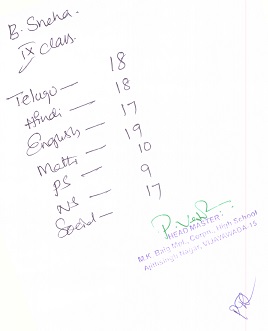 B. Sneha.
IX class.
Telugu — 18
Hindi — 18
English — 17
Maths — 19
PS — 10
NS — 9
Social — 17
HEAD MASTER
M.K. Baig Mpl. Corpn. High School
Nagar, VIJAYAWADA-15